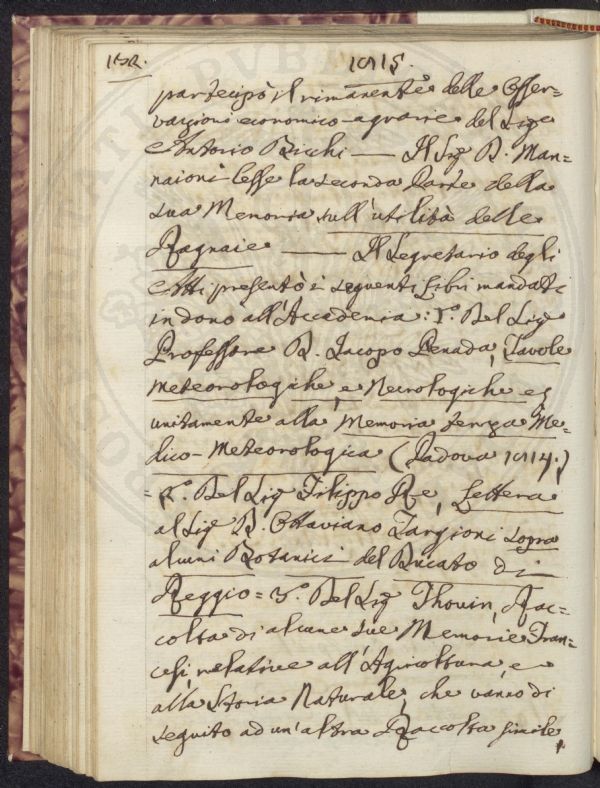 1815.
partecipò il rimanente delle Osser=
vazioni economico-agrarie del Sig.
Antonio Bicchi — Il Sig. D. Man=
naioni lesse la seconda Parte della
sua Memoria sull'utilità delle
Ragnaie — Il Segretario degli
Atti presentò i seguenti Libri mandati
in dono all'Accademia: 1.° Del Sig.
Professore D. Jacopo Penada, Tavole
Meteorologiche, e Necrologiche eg
unitamente alla Memoria terza Me-
dico-Meteorologica (Padova 1814.)
= 2.° Del Sig. Filippo Re, Lettera
al Sig. D. Ottaviano Targioni sopra
alcuni Botanici del Ducato di
Reggio = 3.° Del Sig. Thouin, Rac=
colta di alcune sue Memorie Fran=
cesi, relative all'Agricoltura, e
alla Storia Naturale, che vanno di
seguito ad un'altra Raccolta simile,